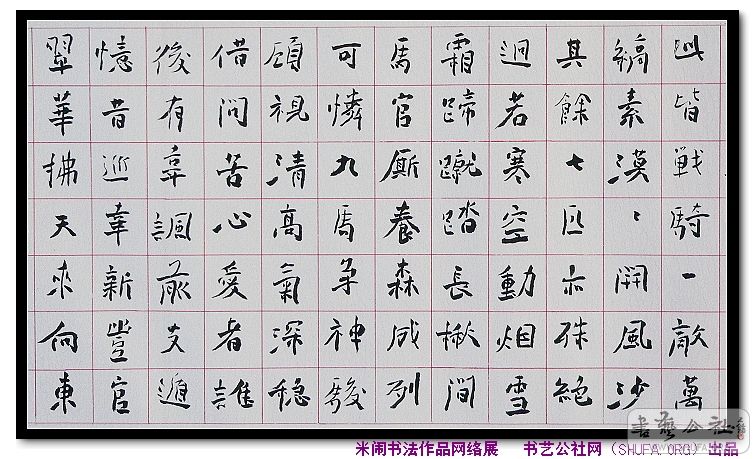 此皆戰騎一敵萬
縞素漠〻開風沙
其餘七匹亦殊絶
迥若寒空動烟雪
霜蹄蹴踏長楸間
馬官廝養森成列
可憐九馬爭神駿
顧視清高氣深穩
借問苦心愛者誰
後有韋諷前支遁
憶昔巡幸新豐宮
翠華拂天來向東
米闹书法作品网络展 书艺公社网（SHUFA.ORG）出品
書藝公社